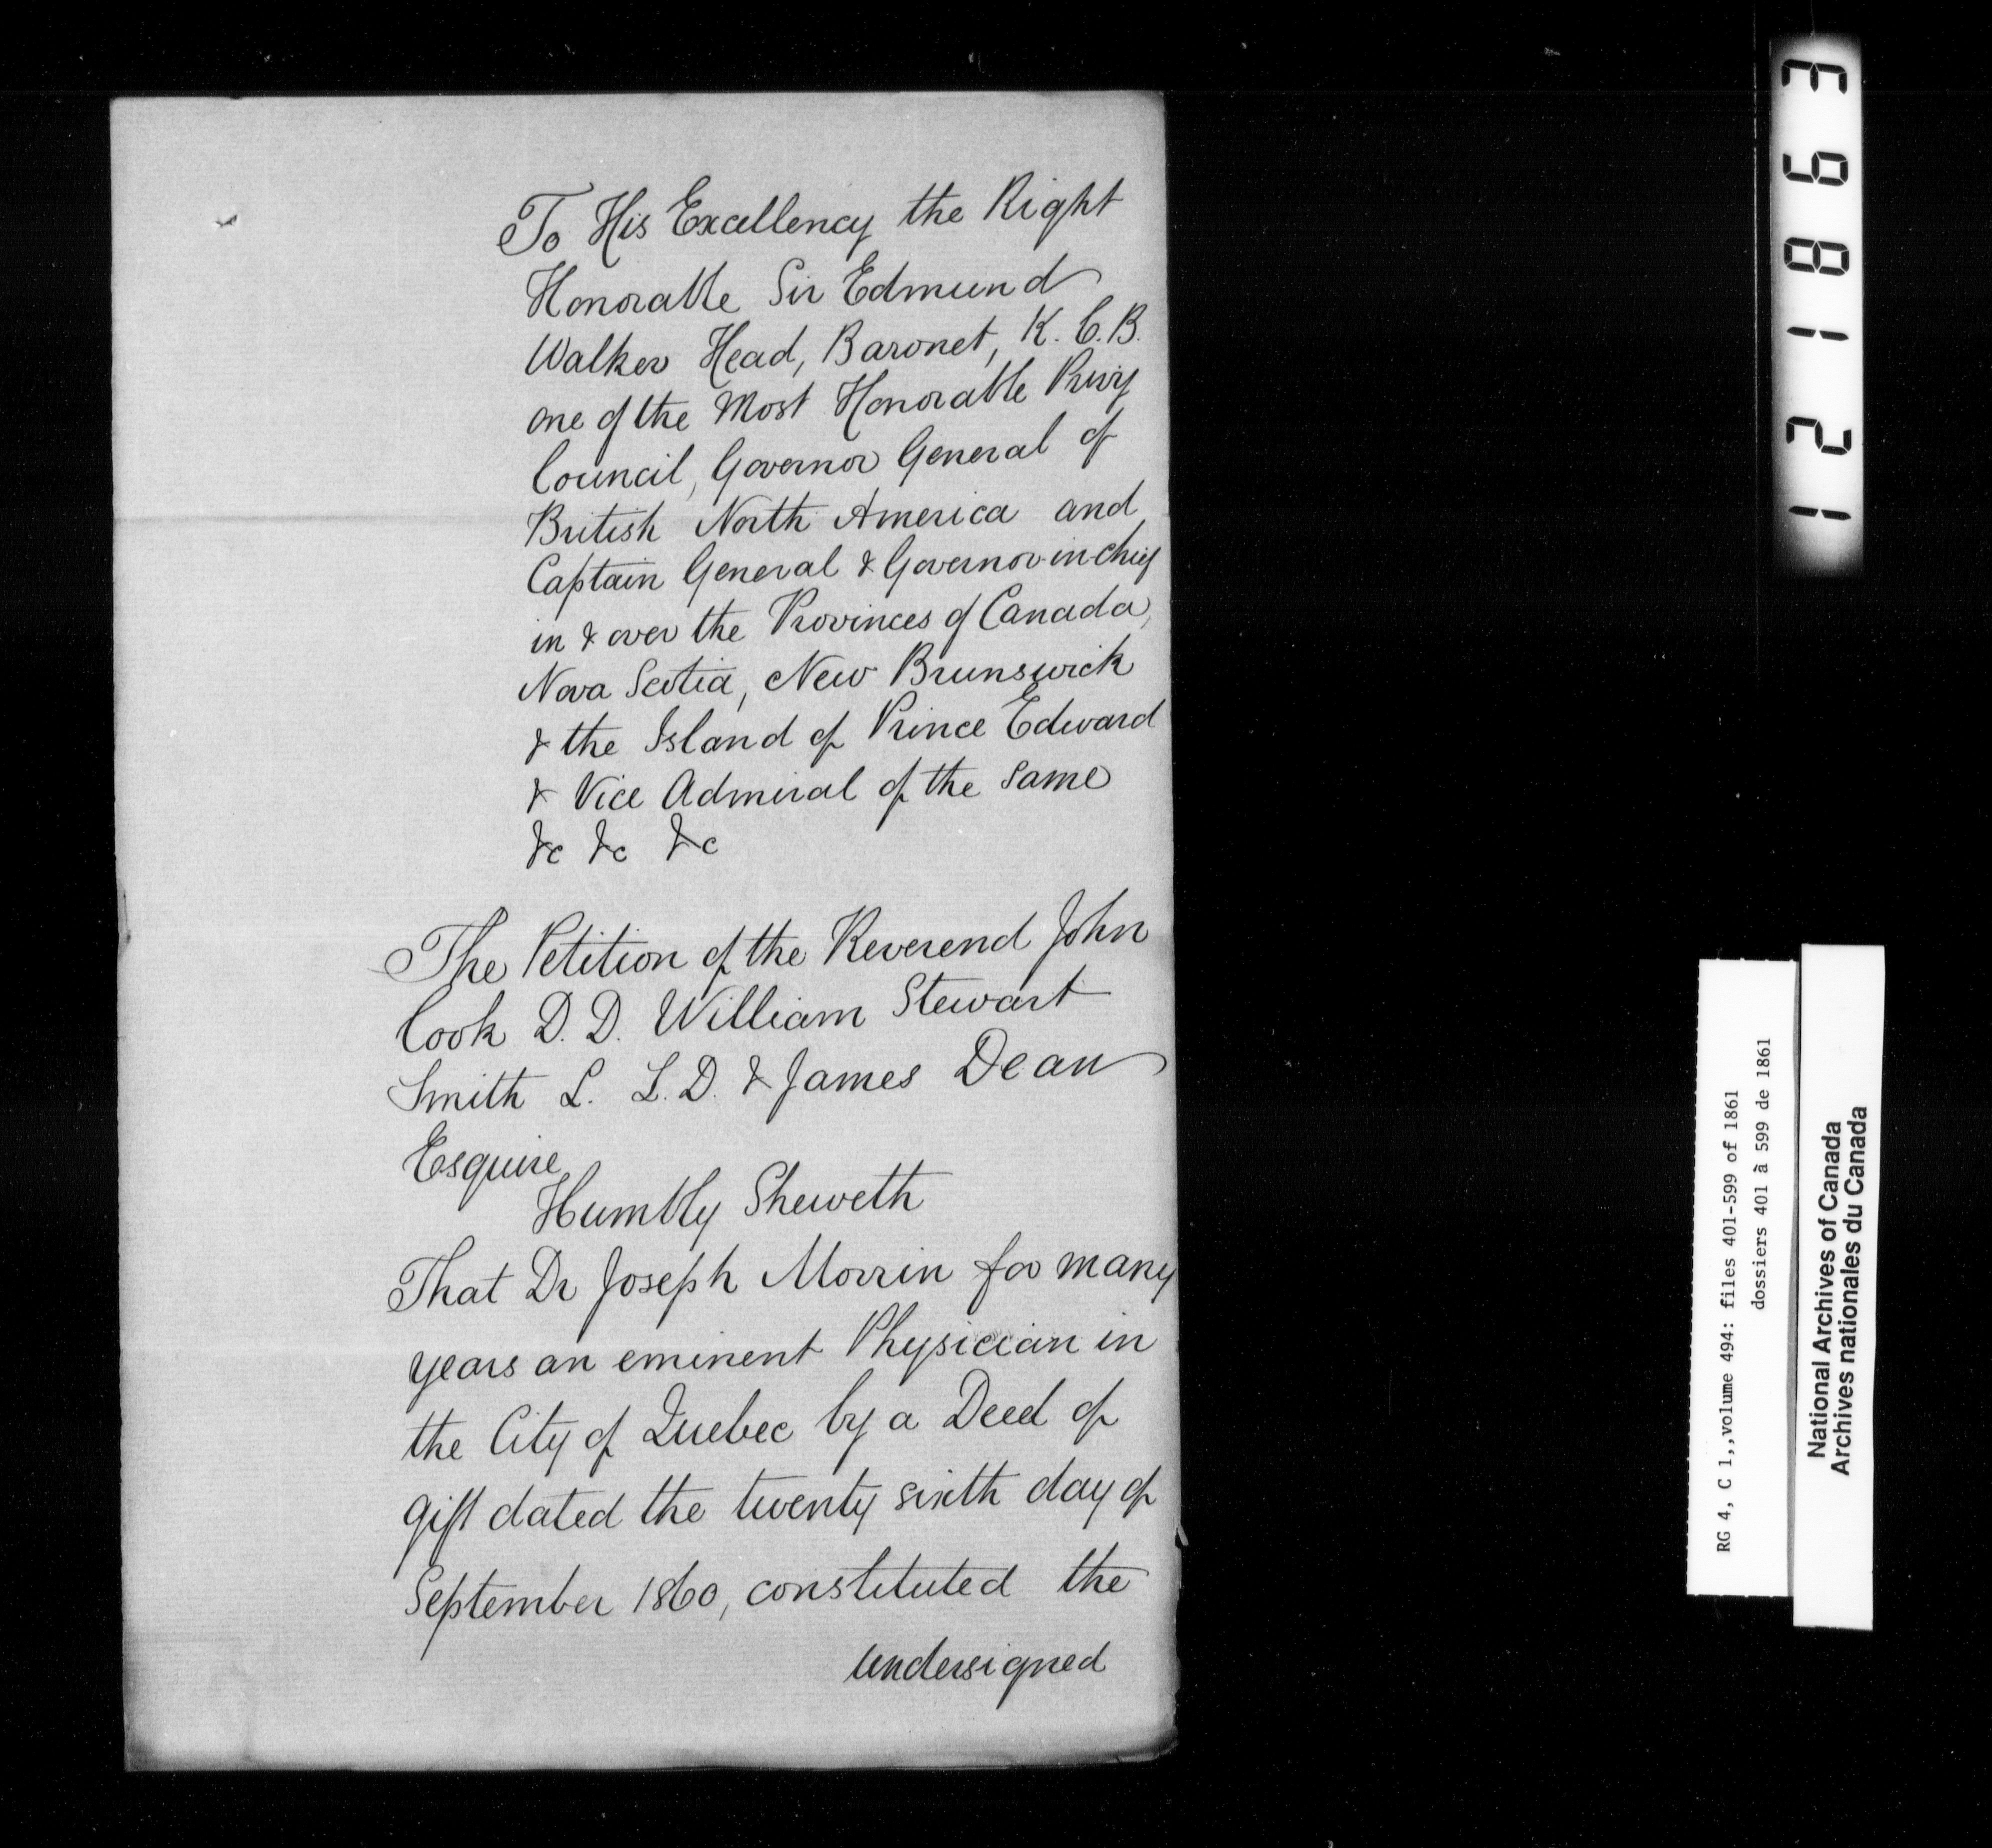 To His Excellency the Right
Honorable Sir Edmund
Walker Head, Baronet, K. C. B.
one of the Most Honorable Privy
Council, Governor General of
British North America and
Captain General & Governor-in-chief
in & over the Provinces of Canada,
Nova Scotia, New Brunswick
& the Island of Prince Edward
& Vice Admiral of the same
&c &c &c
The Petition of the Reverend John
Cook D. D. William Stewart
Smith L. L. D. & James Dean
Esquire
Humbly Sheweth
That Dr Joseph Morrin for many
years an eminent Physician in
the City of Quebec by a Deed of
gift dated the twenty sixth day of
September 1860, constituted the
undersigned
121863
RG 4, C 1,,volume 494: files 401-599 of 1861
dossiers 401 à 599 de 1861
National Archives of Canada
Archives nationales du Canada